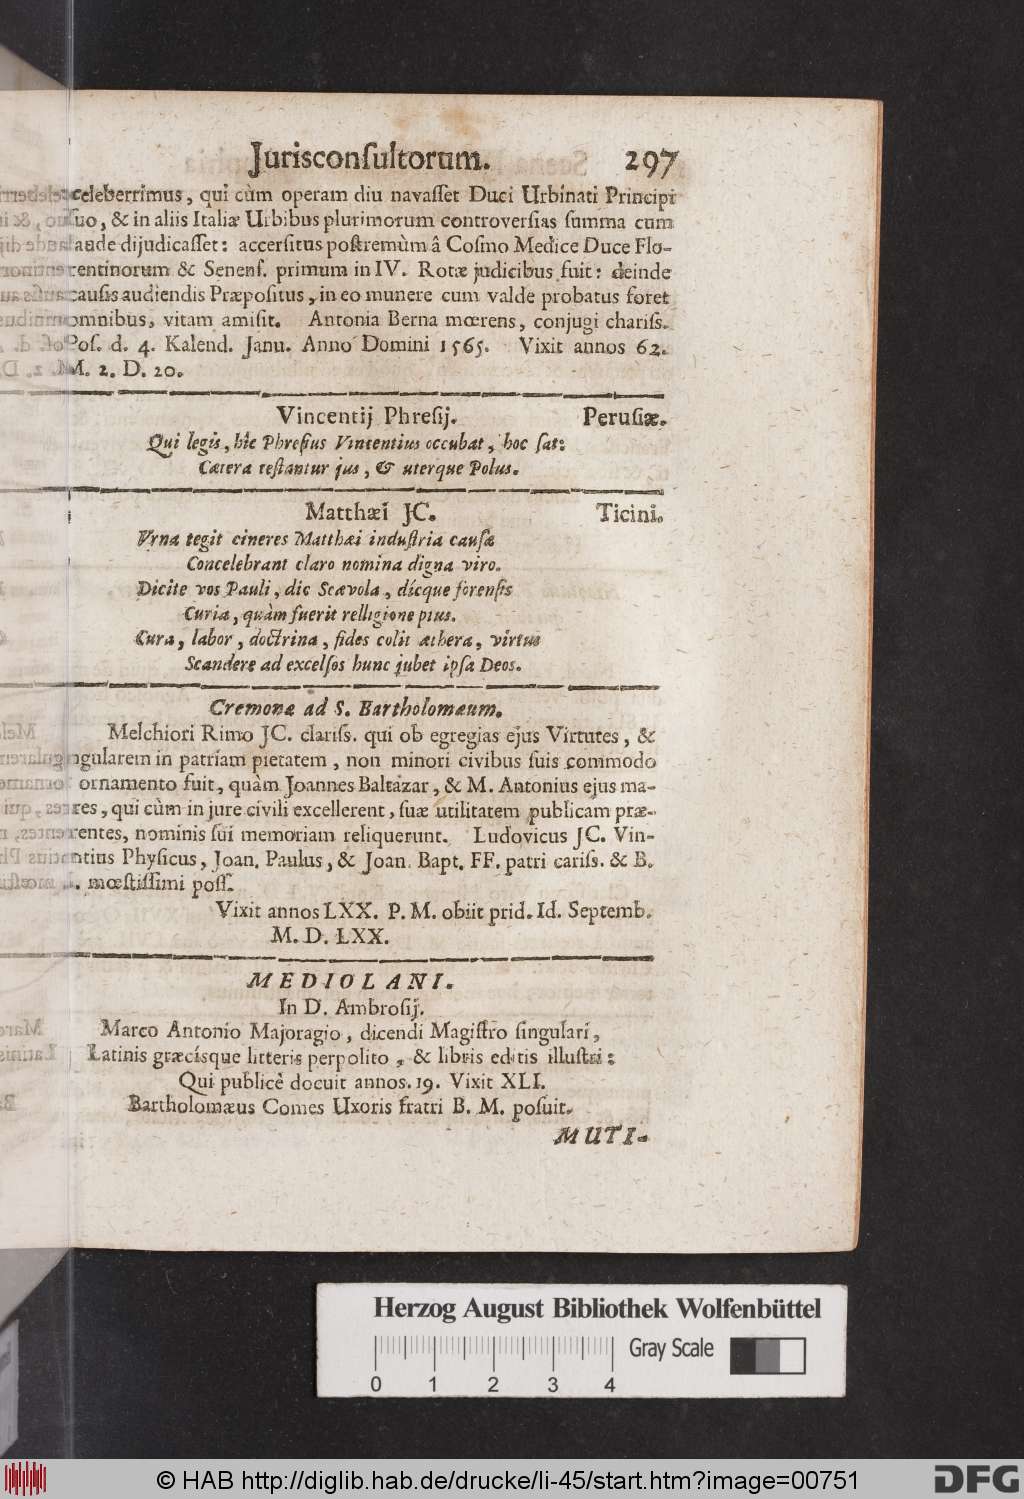 Jurisconſultorum. 297
celeberrimus, qui cùm operam diu navaſſet Duci Urbinati Principi
ſuo, & in aliis Italiæ Urbibus plurimorum controverſias ſumma cum
laude dijudicaſſet: accerſitus poſtremùm â Coſmo Medice Duce Flo-
rentinorum & Senenſ. primum in IV. Rotæ judicibus fuit: deinde
cauſis audiendis Præpoſitus, in eo munere cum valde probatus foret
omnibus, vitam amiſit. Antonia Berna mœrens, conjugi chariſſ.
Poſ. d. 4. Kalend. Janu. Anno Domini 1565. Vixit annos 62.
M. 2. D. 20.
Vincentij Phreſij. Peruſiæ.
Qui legis, hîc Phreſius Vincentius occubat, hoc ſat:
Cætera teſtantur jus, & uterque Polus.
Matthæi JC. Ticini.
Vrna tegit cineres Matthæi induſtria cauſæ
Concelebrant claro nomina digna viro.
Dicite vos Pauli, dic Scævola, dicque forenſis
Curia, quàm fuerit relligione pius.
Cura, labor, doctrina, fides colit æthera, virtus
Scandere ad excelſos hunc jubet ipſa Deos.
Cremonæ ad S. Bartholomæum.
Melchiori Rimo JC. clariſſ. qui ob egregias ejus Virtutes, &
ngularem in patriam pietatem, non minori civibus ſuis commodo
ornamento fuit, quàm Joannes Baltazar, & M. Antonius ejus ma-
res, qui cùm in jure civili excellerent, ſuæ utilitatem publicam præ-
rentes, nominis ſui memoriam reliquerunt. Ludovicus JC. Vin-
ntius Phyſicus, Joan. Paulus, & Joan. Bapt. FF. patri cariſſ. & B.
. mœſtiſſimi poſſ.
Vixit annos LXX. P. M. obiit prid. Id. Septemb.
M. D. LXX.
MEDIOLANI.
In D. Ambroſij.
Marco Antonio Majoragio, dicendi Magiſtro ſingulari,
Latinis græcisque litteris perpolito, & libris editis illuſtri:
Qui publicè docuit annos. 19. Vixit XLI.
Bartholomæus Comes Uxoris fratri B. M. poſuit.
MUTI-
Herzog August Bibliothek Wolfenbüttel
Gray Scale
0 1 2 3 4
© HAB http://diglib.hab.de/drucke/li-45/start.htm?image=00751
DFG